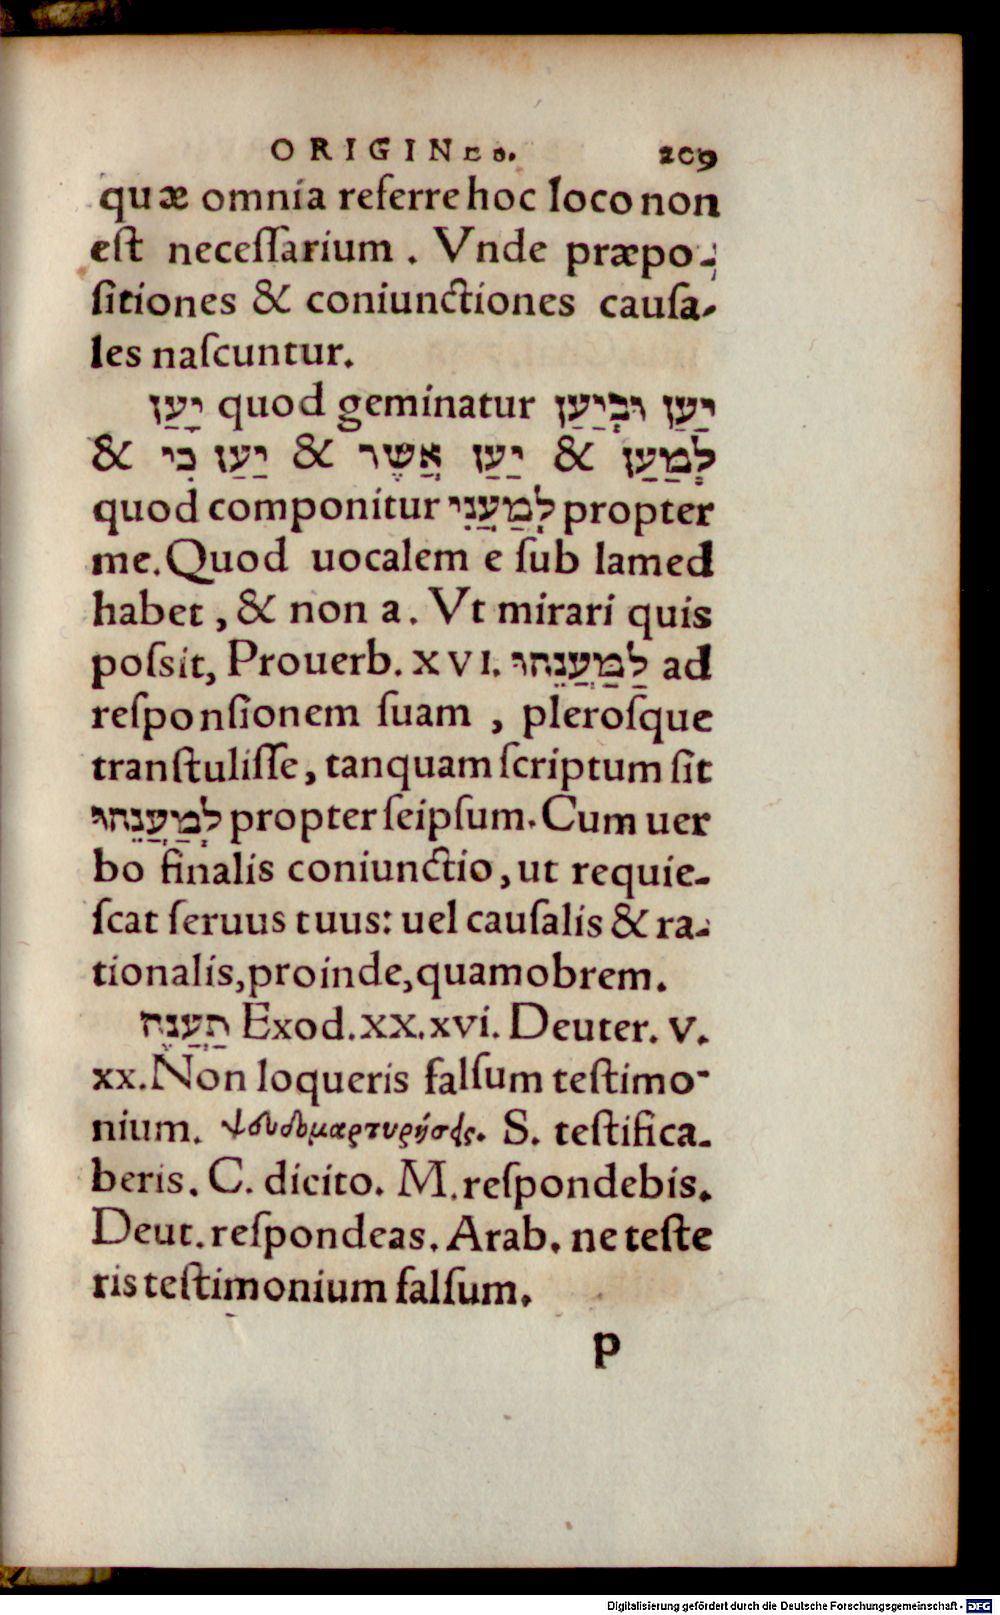 ORIGINES. 209
quæ omnia referre hoc loco non
est necessarium. Vnde præpo-
sitiones & coniunctiones causa-
les nascuntur.
יַעַן quod geminatur יַעַן וּבְיַעַן
& יַעַן כִּי & יַעַן אֲשֶׁר & לְמַעַן
quod componitur לְמַעֲנִי propter
me. Quod uocalem e sub lamed
habet, & non a. Vt mirari quis
possit, Prouerb. XVI. לַמַּעֲנֵהוּ ad
responsionem suam, plerosque
transtulisse, tanquam scriptum sit
לְמַעֲנֵהוּ propter seipsum. Cum uer
bo finalis coniunctio, ut requie-
scat seruus tuus: uel causalis & ra-
tionalis, proinde, quamobrem.
תַעֲנֶה Exod. XX. xvi. Deuter. V.
xx. Non loqueris falsum testimo-
nium. ψευδομαρτυρήσεις. S. testifica-
beris. C. dicito. M. respondebis.
Deut. respondeas. Arab. ne teste
ris testimonium falsum.
p
Digitalisierung gefördert durch die Deutsche Forschungsgemeinschaft - DFG